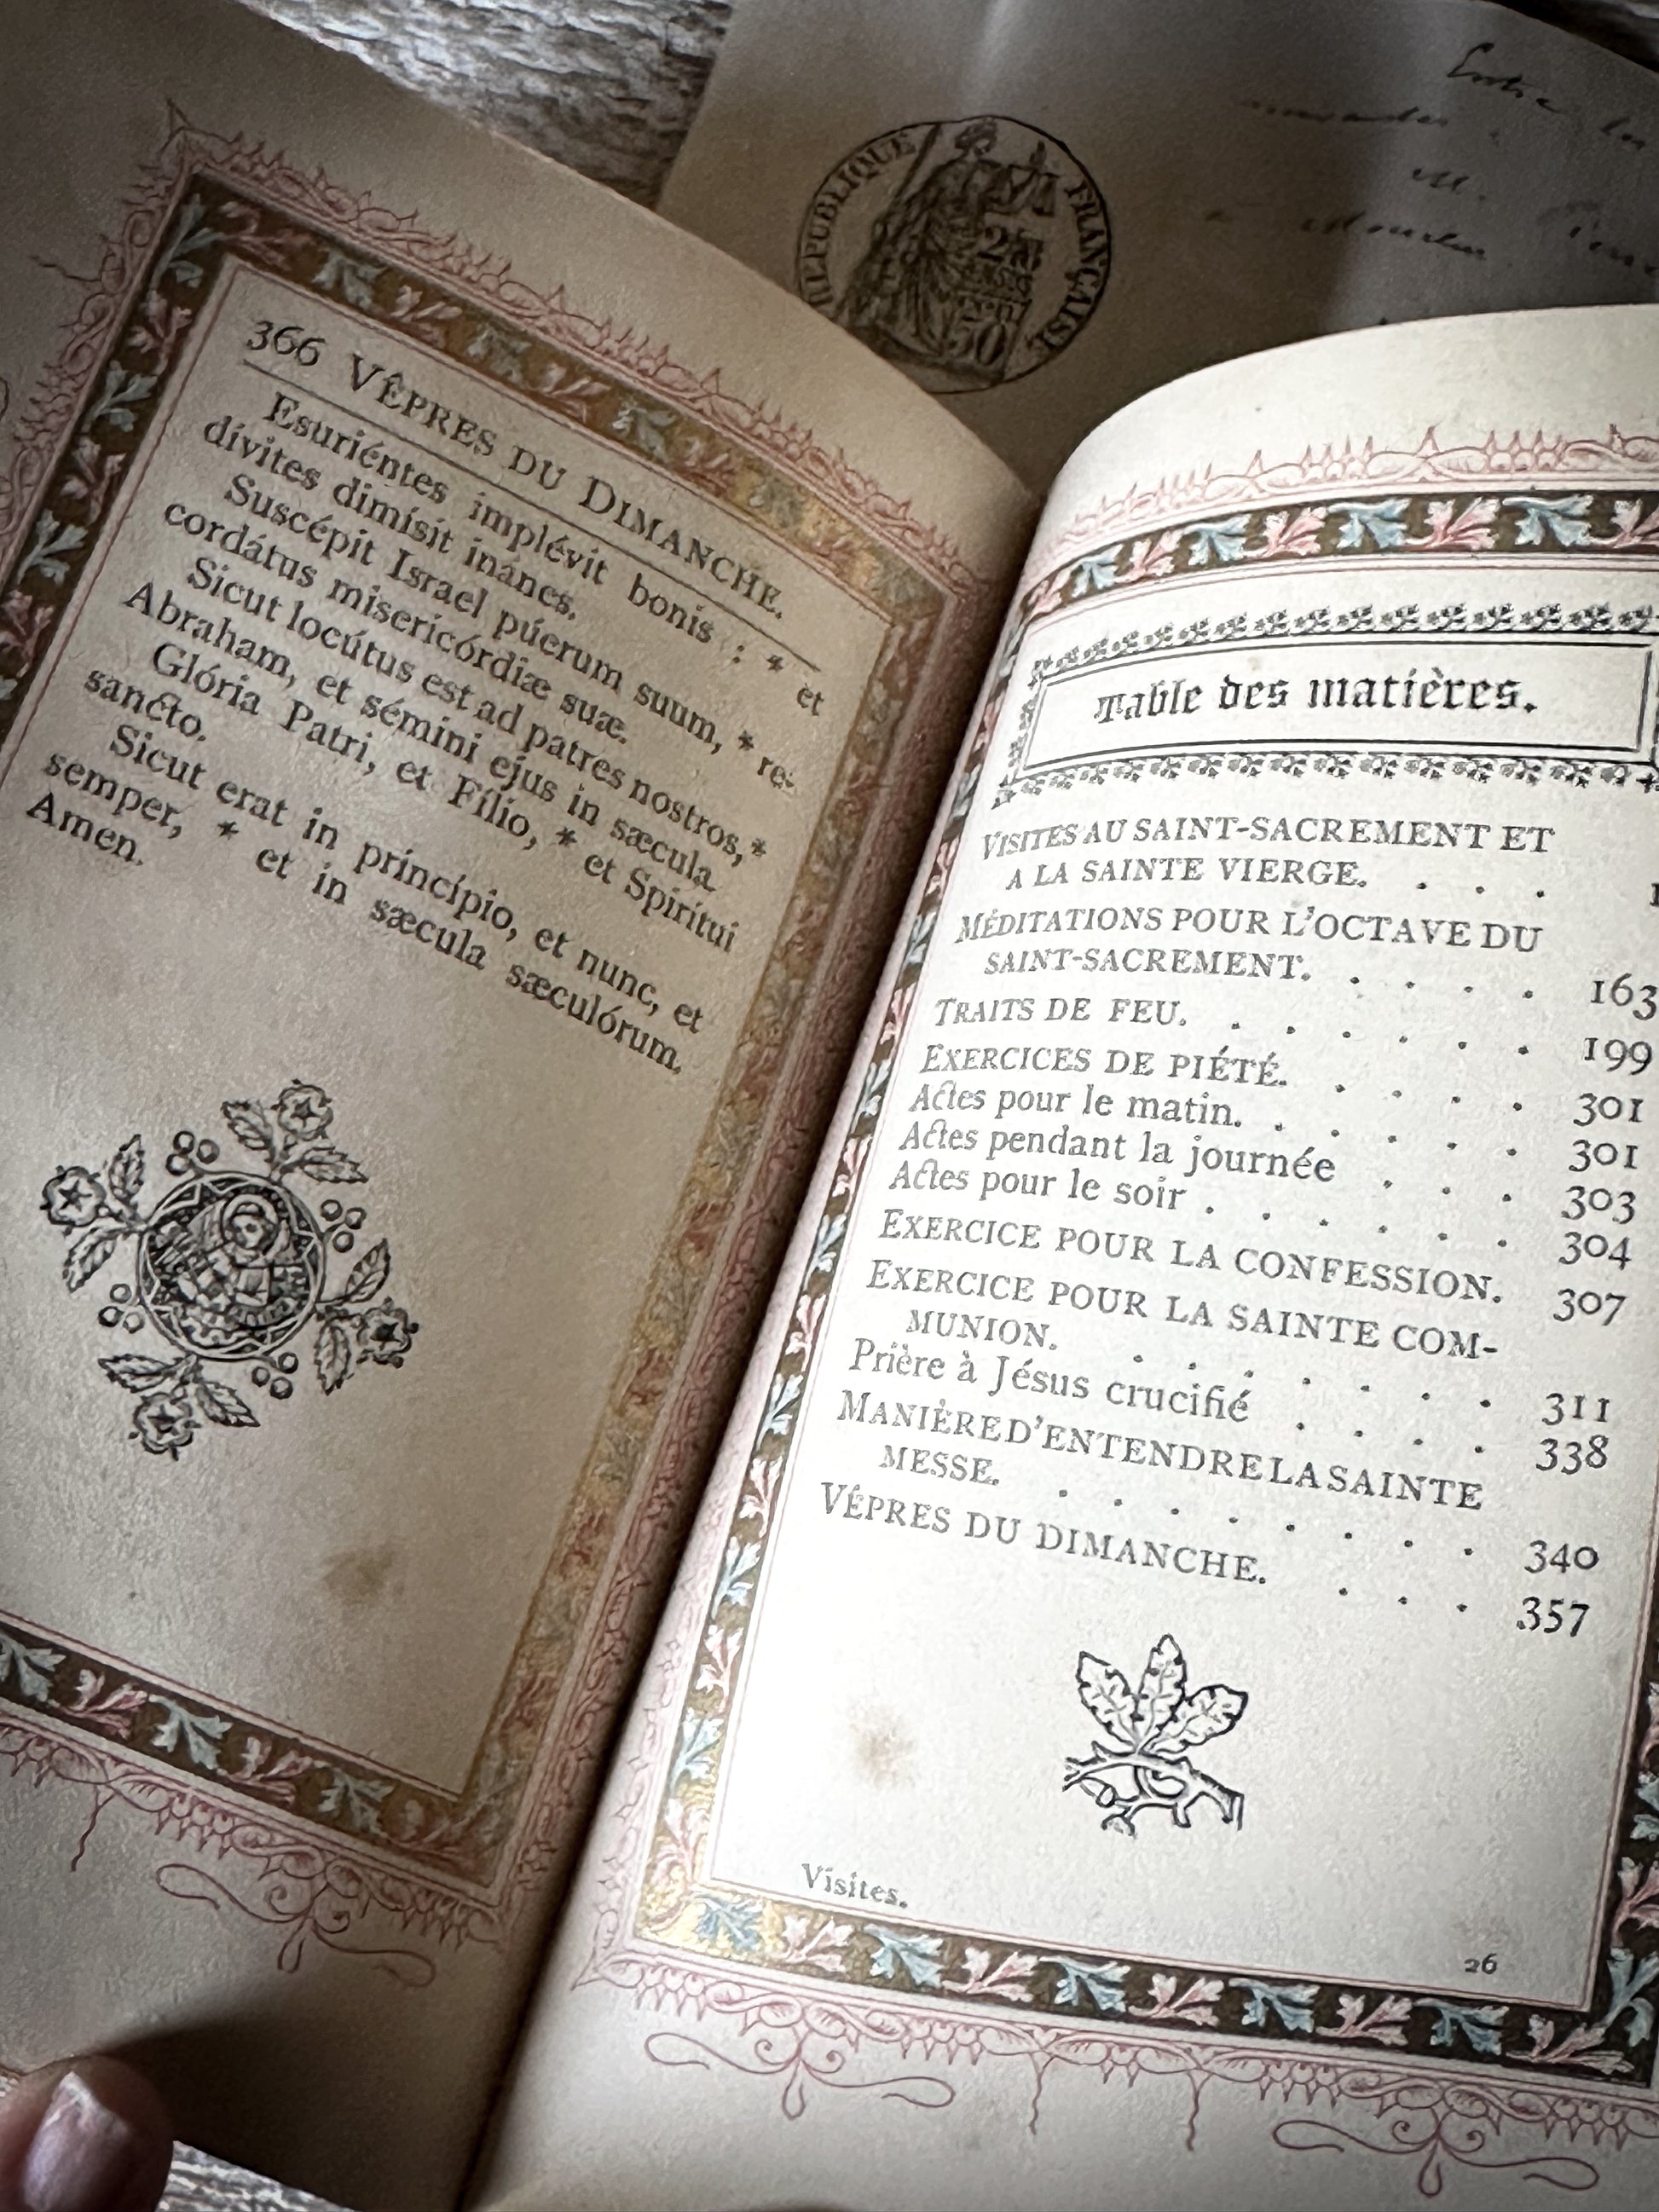 366 VÊPRES DU DIMANCHE.
Esuriéntes implévit bonis : * et
dívites dimísit inánes.
Suscépit Israel púerum suum, * re-
cordátus misericórdiæ suæ.
Sicut locútus est ad patres nostros, *
Abraham, et sémini ejus in sæcula.
Glória Patri, et Fílio, * et Spirítui
sancto.
Sicut erat in princípio, et nunc, et
semper, * et in sæcula sæculórum.
Amen.
RÉPUBLIQUE FRANÇAISE
50
M.
Table des matières.
VISITES AU SAINT-SACREMENT ET
A LA SAINTE VIERGE. . . .
MÉDITATIONS POUR L'OCTAVE DU
SAINT-SACREMENT. . . . . 163
TRAITS DE FEU. . . . . . . 199
EXERCICES DE PIÉTÉ. . . . . 301
Actes pour le matin. . . . . . 301
Actes pendant la journée . . . 303
Actes pour le soir . . . . . . 304
EXERCICE POUR LA CONFESSION. 307
EXERCICE POUR LA SAINTE COM-
MUNION. . . . . . . 311
Prière à Jésus crucifié . . . . 338
MANIÈRE D'ENTENDRE LA SAINTE
MESSE. . . . . . . . 340
VÊPRES DU DIMANCHE. . . . 357
Visites.
26